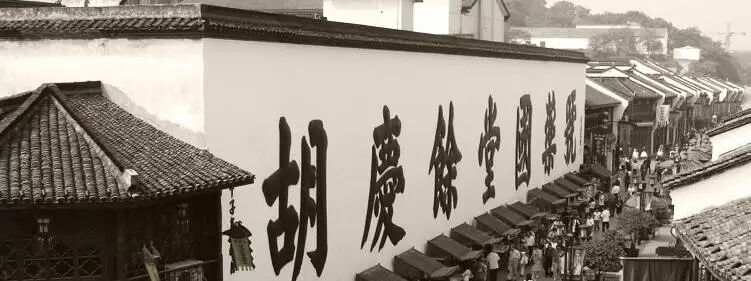 胡慶餘堂國藥號